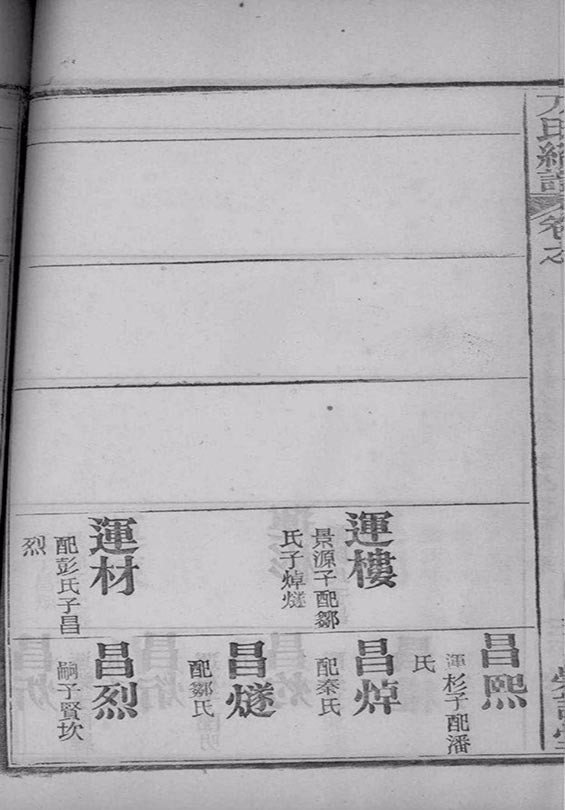 氏統譜
卷之
運樓
景源子配鄒
氏子焯燧
運材
配彭氏子昌
烈
昌熙
運杉子配潘
氏
昌焯
配秦氏
昌燧
配鄒氏
昌烈
嗣子賢坎